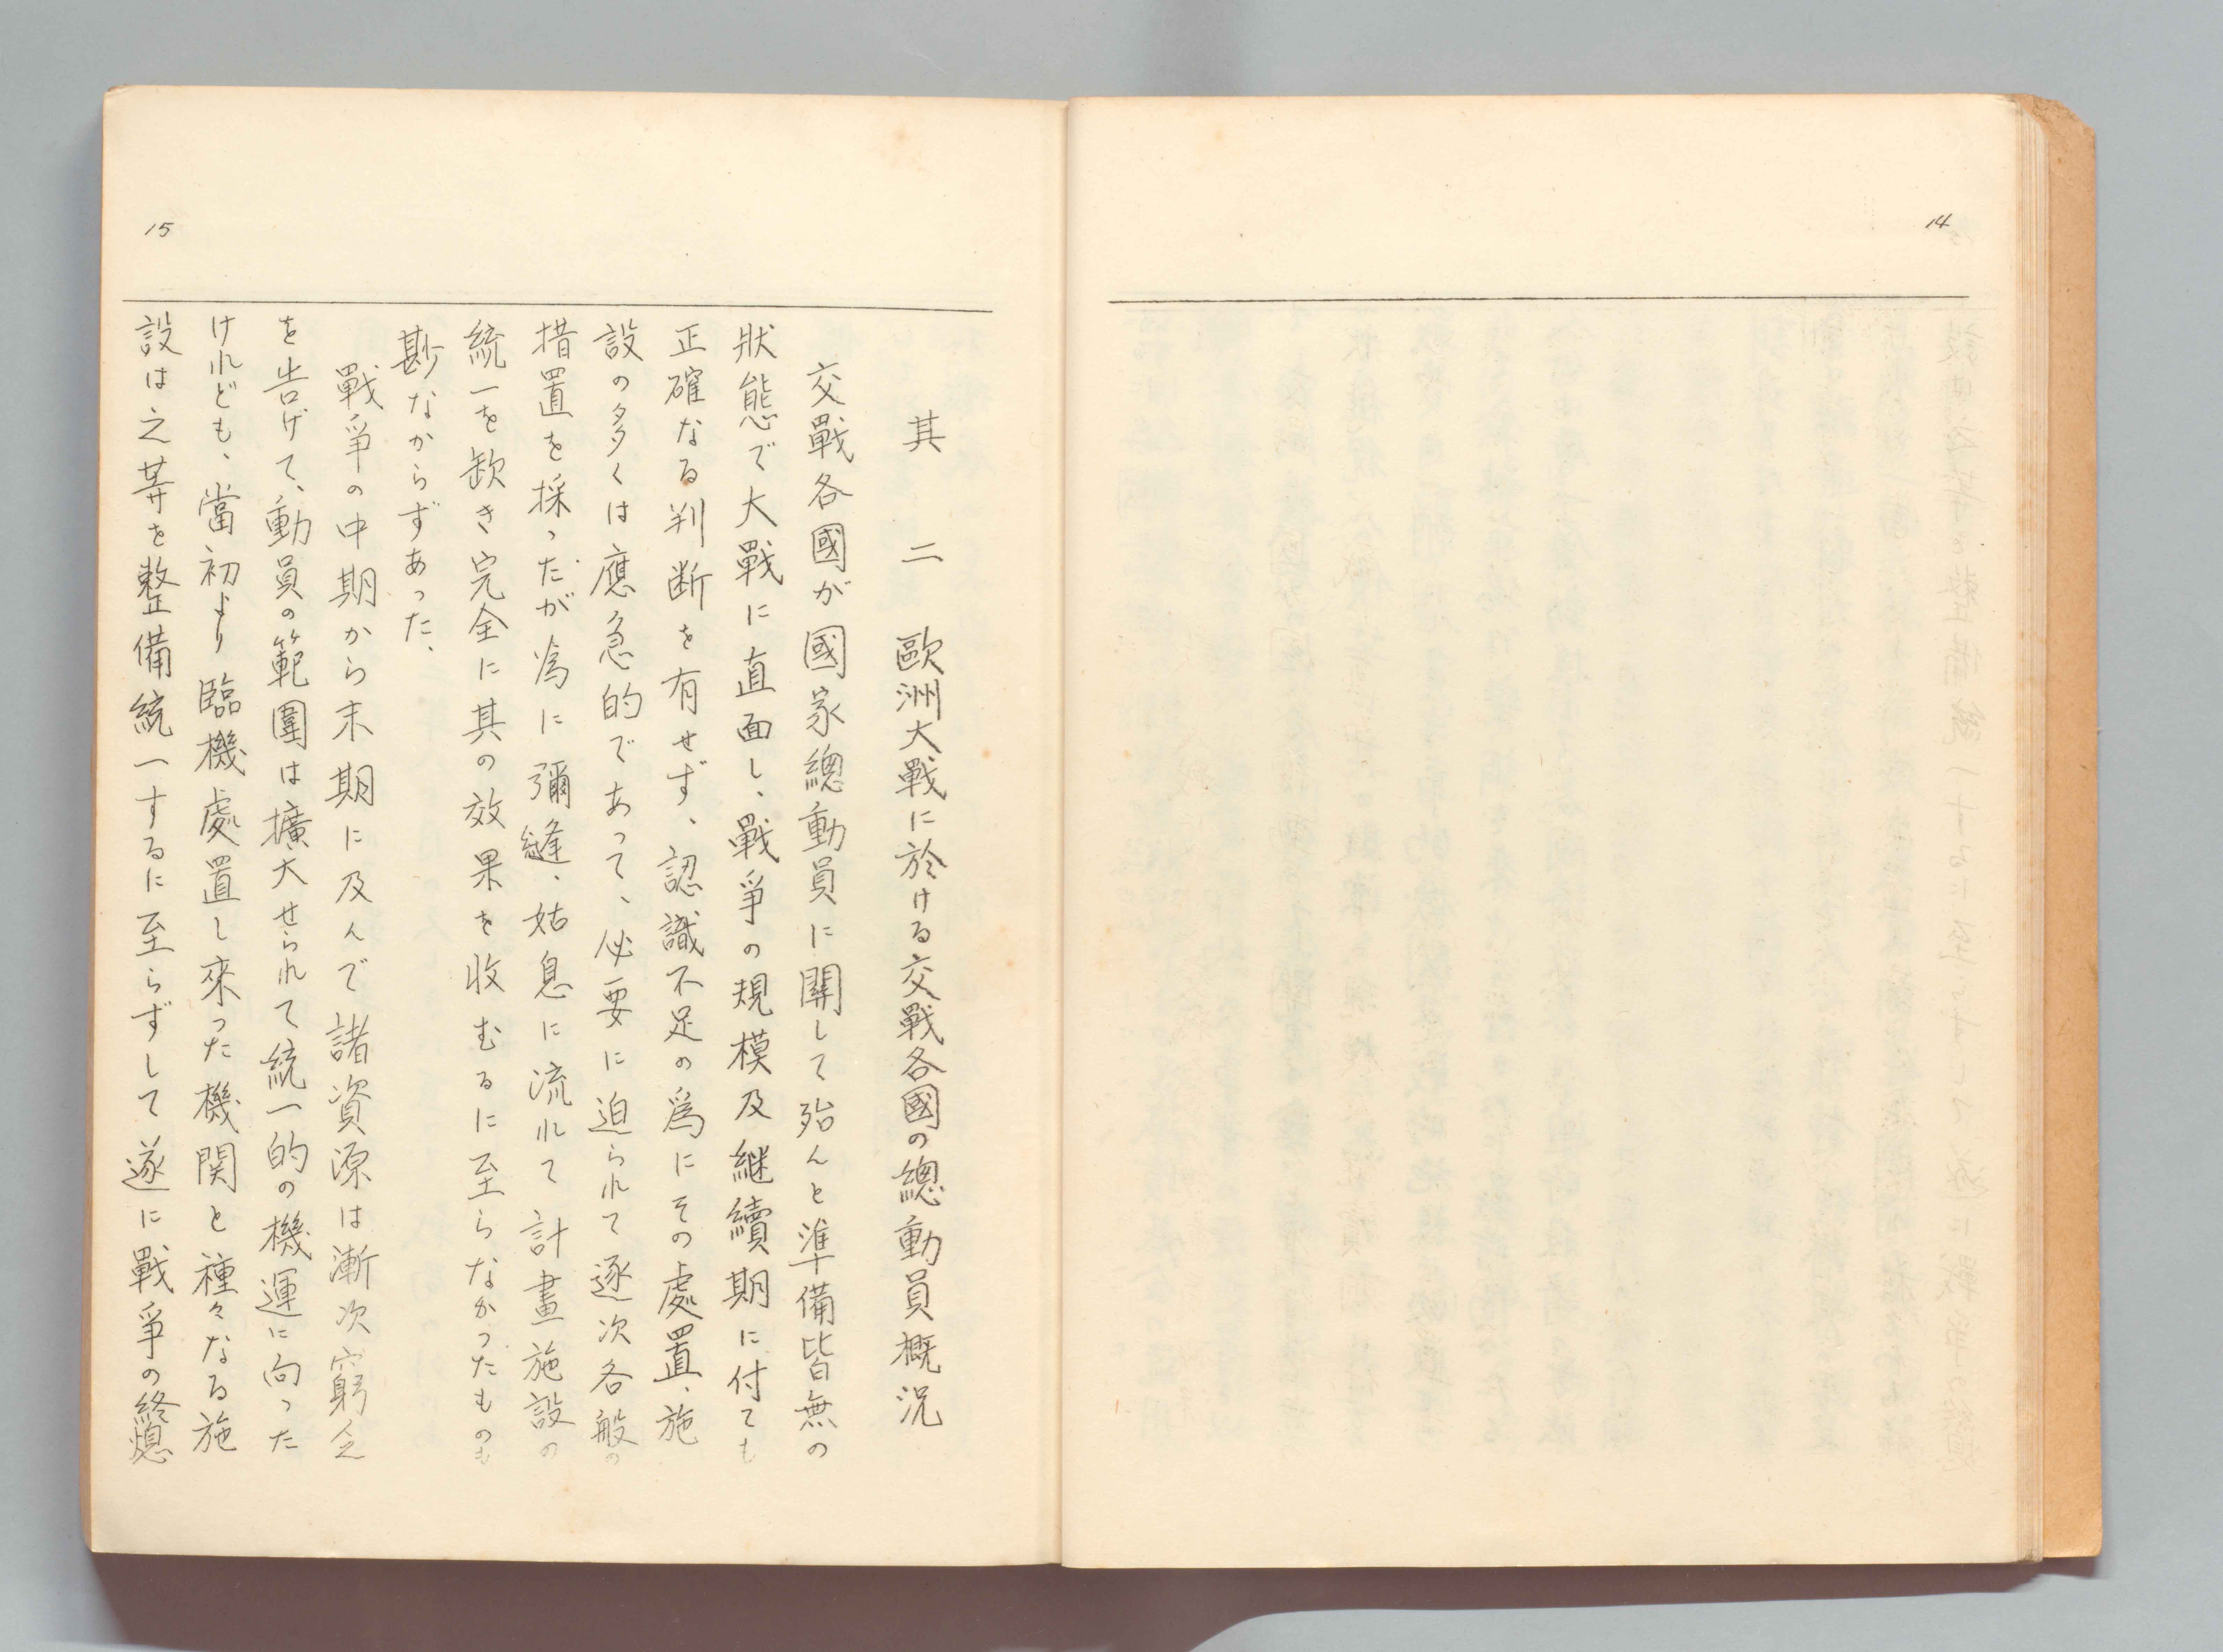 14
15
其二 歐洲大戰に於ける交戰各國の總動員概況
交戰各國が國家總動員に關して殆んと準備皆無の
狀態で大戰に直面し、戰爭の規模及継續期に付ても
正確なる判断を有せず、認識不足の爲にその處置、施
設の多くは應急的であって、必要に迫られて逐次各般の
措置を採ったが爲に彌縫、姑息に流れて計畫施設の
統一を缺き完全に其の效果を收むるに至らなかったものも
尠なからずあった、
戰爭の中期から末期に及んで諸資源は漸次窮乏
を告げて、動員の範圍は擴大せられて統一的の機運に向った
けれども、當初より臨機處置し來った機関と種々なる施
設は之等を整備統一するに至らずして遂に戰爭の終熄